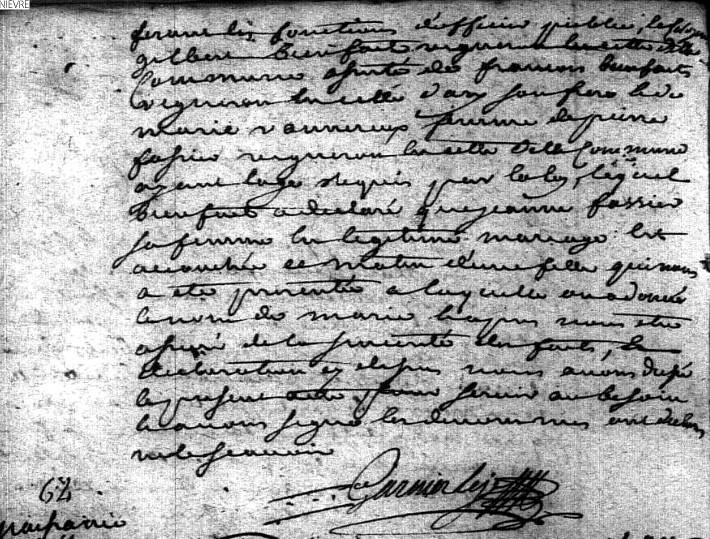 NIEVRE
fesant les fonctions d'officier public, le citoyen
gilbert bienfait vigneron en cette ditte
Commune assisté de francois bienfait
vigneron en celle d'
marie femme de pierre
fassier vigneron en cette ditte Commune
ayant l'age requis par la loy, lequel
bienfait a declaré que jeanne fassier
sa femme en legitime mariage est
accouchée ce matin d'une fille qui nous
a été presentée a laquelle on a donné
le nom de marie et apres nous etre
assuré de la sincerité des faits, de
declaration cy dessus nous avons dressé
le present acte pour servir au besoin
et avons signé les denommés ont declaré
ne le scavoir
Garnier
62